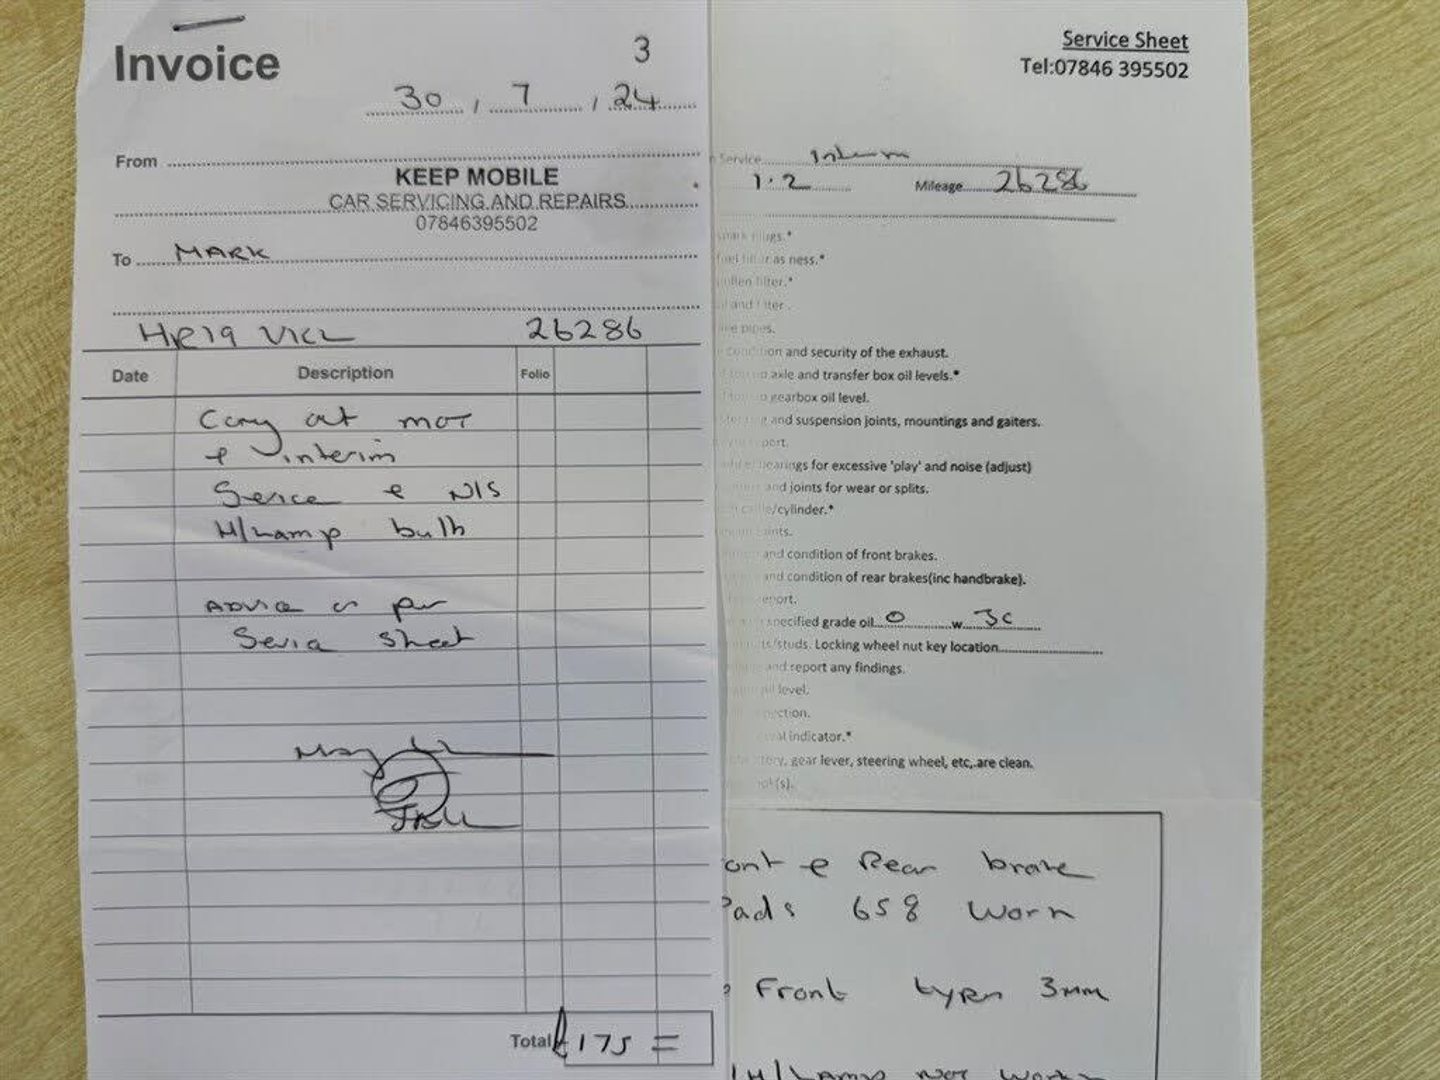 Invoice
3
30 / 7 / 24
From
KEEP MOBILE
CAR SERVICING AND REPAIRS
07846395502
To MARK
26286
Date Description Folio
Carry out MOT
& interim
Service & N/S
H/Lamp bulb
Advice as per
Service sheet
Total £175 =
Service Sheet
Tel:07846 395502
Service Interim
1.2 Mileage 26286
as ness.*
filter.*
and
pipes.
and security of the exhaust.
axle and transfer box oil levels.*
gearbox oil level.
and suspension joints, mountings and gaiters.
bearings for excessive 'play' and noise (adjust)
and joints for wear or splits.
/cylinder.*
and condition of front brakes.
and condition of rear brakes(inc handbrake).
specified grade oil 0 w 30
/studs. Locking wheel nut key location
and report any findings.
level.
indicator.*
, gear lever, steering wheel, etc, are clean.
& Rear brake
Pads 65% Worn
Front tyres 3mm
H/Lamp not